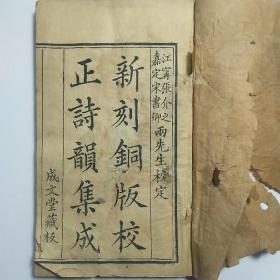 江寧張介之
嘉定宋書卿
兩先生校定
新刻銅版校
正詩韻集成
成文堂藏板